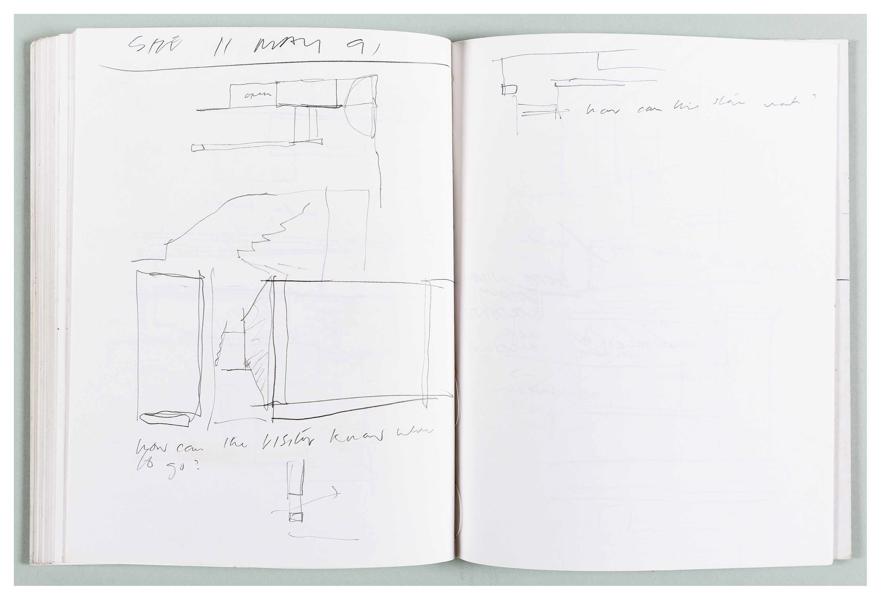 11 MAY 91
open
how can the visitor know where
to go?
how can this stair work?